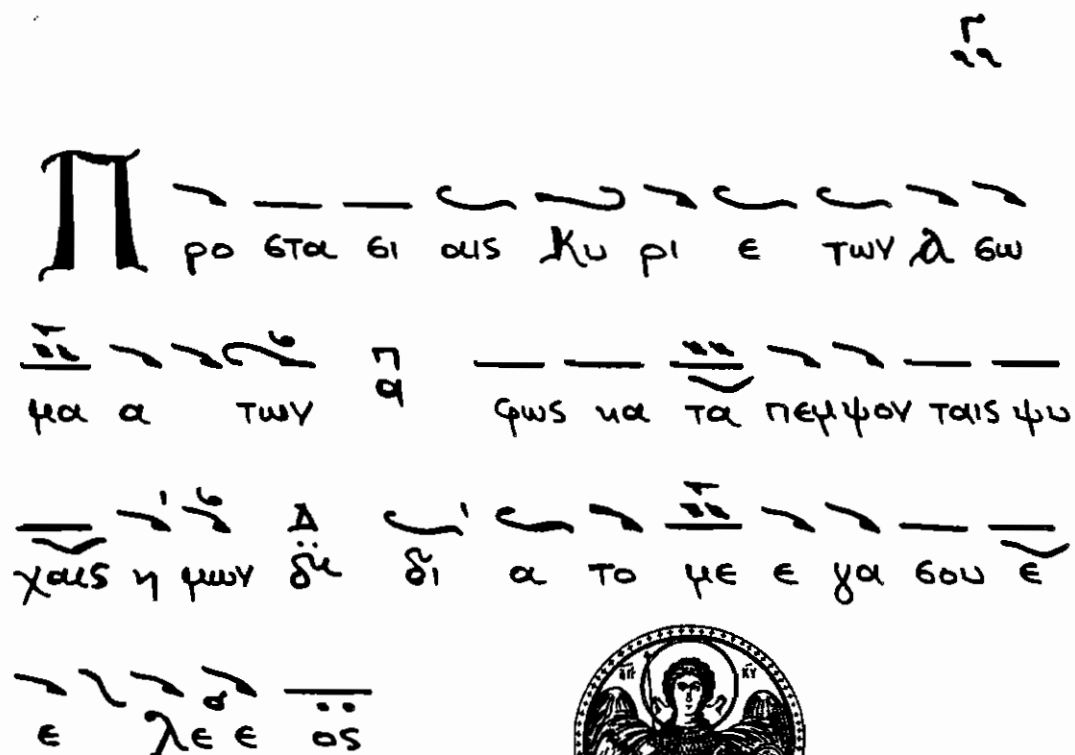 Γ
Π ρο στα σι αις Κυ ρι ε των Α σω
μα α των π α φως κα τα πεμψον ταις ψυ
χαις η μων Δ δι δι α το με ε γα σου ε
ε λε ε ος